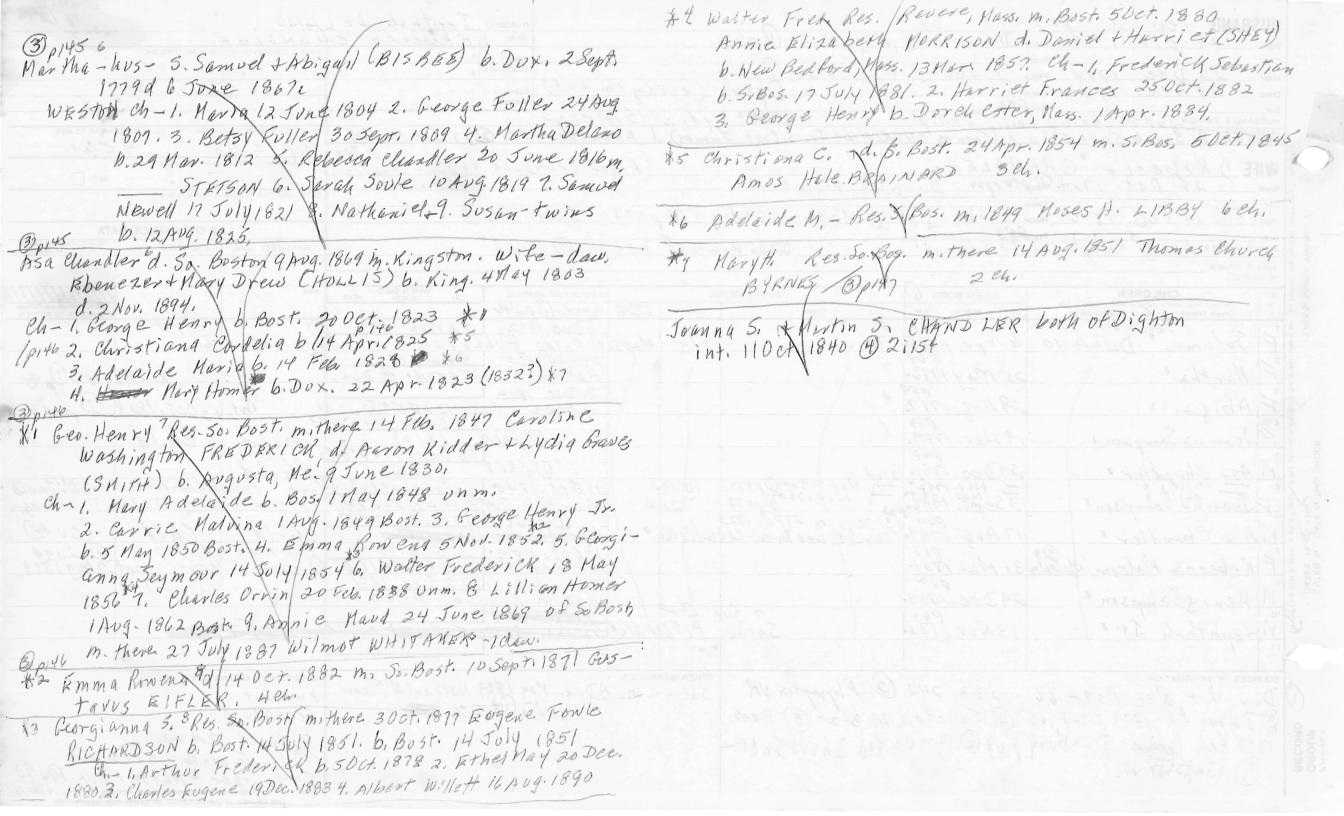 ③ p145 6
Martha - hus - S. Samuel + Abigail (BISBEE) b. Dux. 2 Sept.
1779 d 6 June 1867.
WESTON Ch - 1. Maria 12 June 1804 2. George Fuller 24 Aug
1807. 3. Betsy Fuller 30 Sept. 1809 4. Martha Delano
b. 29 Mar. 1812 5. Rebecca Chandler 20 June 1816 m.
___ STETSON 6. Sarah Soule 10 Aug. 1819 7. Samuel
Newell 17 July 1821 8. Nathaniel + 9. Susan - twins
b. 12 Aug. 1825.
③ p145
Asa Chandler 6 d. So. Boston 9 Aug. 1869 m. Kingston. Wife - dau.
Ebenezer + Mary Drew (HOLLIS) b. King. 4 May 1803
d. 2 Nov. 1894.
Ch - 1. George Henry b. Bost. 20 Oct. 1823 *1
p146
/p146 2. Christiana Cordelia b 14 Apr. 1825 *5
3. Adelaide Maria b. 14 Feb. 1828 *6
4. Mary Homer b. Dux. 22 Apr. 1823 (1832?) *7
③ p146
*1 Geo. Henry 7 Res. So. Bost. m. there 14 Feb. 1847 Caroline
Washington FREDERICK d. Aaron Kidder + Lydia Graves
(SMITH) b. Augusta, Me. 9 June 1830.
Ch - 1. Mary Adelaide b. Bos. 1 May 1848 unm.
2. Carrie Malvina 1 Aug. 1849 Bost. 3. George Henry Jr.
b. 5 May 1850 Bost. 4. Emma Rowena *2 5 Nov. 1852. 5. Georgi-
anna Seymour *3 14 July 1854 6. Walter Frederick 18 May
1856 *4 7. Charles Orvin 20 Feb. 1858 unm. 8 Lillian Homer
1 Aug. 1862 Bost. 9. Annie Maud 24 June 1869 of So Bost
m. there 27 July 1887 Wilmot WHITAKER - 1 dau.
③ p146
*2 Emma Rowena 8 d. 14 Oct. 1882 m. So. Bost. 10 Sept. 1871 Gus-
tavus EIFLER. 4 ch.
*3 Georgianna S. 8 Res. So. Bost m. there 3 Oct. 1877 Eugene Fowle
RICHARDSON b. Bost. 14 July 1851. b. Bost. 14 July 1851
Ch - 1. Arthur Frederick b. 5 Oct. 1878 2. Ethel May 20 Dec.
1880. 3. Charles Eugene 19 Dec. 1883 4. Albert Willett 16 Aug. 1890
*4 Walter Fred. Res. Revere, Mass. m. Bost. 5 Oct. 1880
Annie Elizabeth MORRISON d. Daniel + Harriet (SHEY)
b. New Bedford, Mass. 13 Mar. 1857. Ch - 1. Frederick Sebastian
b. S. Bos. 17 July 1881. 2. Harriet Frances 25 Oct. 1882
3. George Henry b. Dorchester, Mass. 1 Apr. 1884.
*5 Christiana C. 7 d. S. Bost. 24 Apr. 1854 m. S. Bos. 5 Oct. 1845
Amos Hale BRAINARD 3 ch.
*6 Adelaide M. - Res. S. Bos. m. 1849 Moses H. LIBBY 6 ch.
*7 Mary H. Res. So. Bos. m. there 14 Aug. 1851 Thomas Church
BYRNES / ③ p147 2 ch.
Joanna S. + Martin S. CHANDLER both of Dighton
int. 11 Oct 1840 ④ 2:157